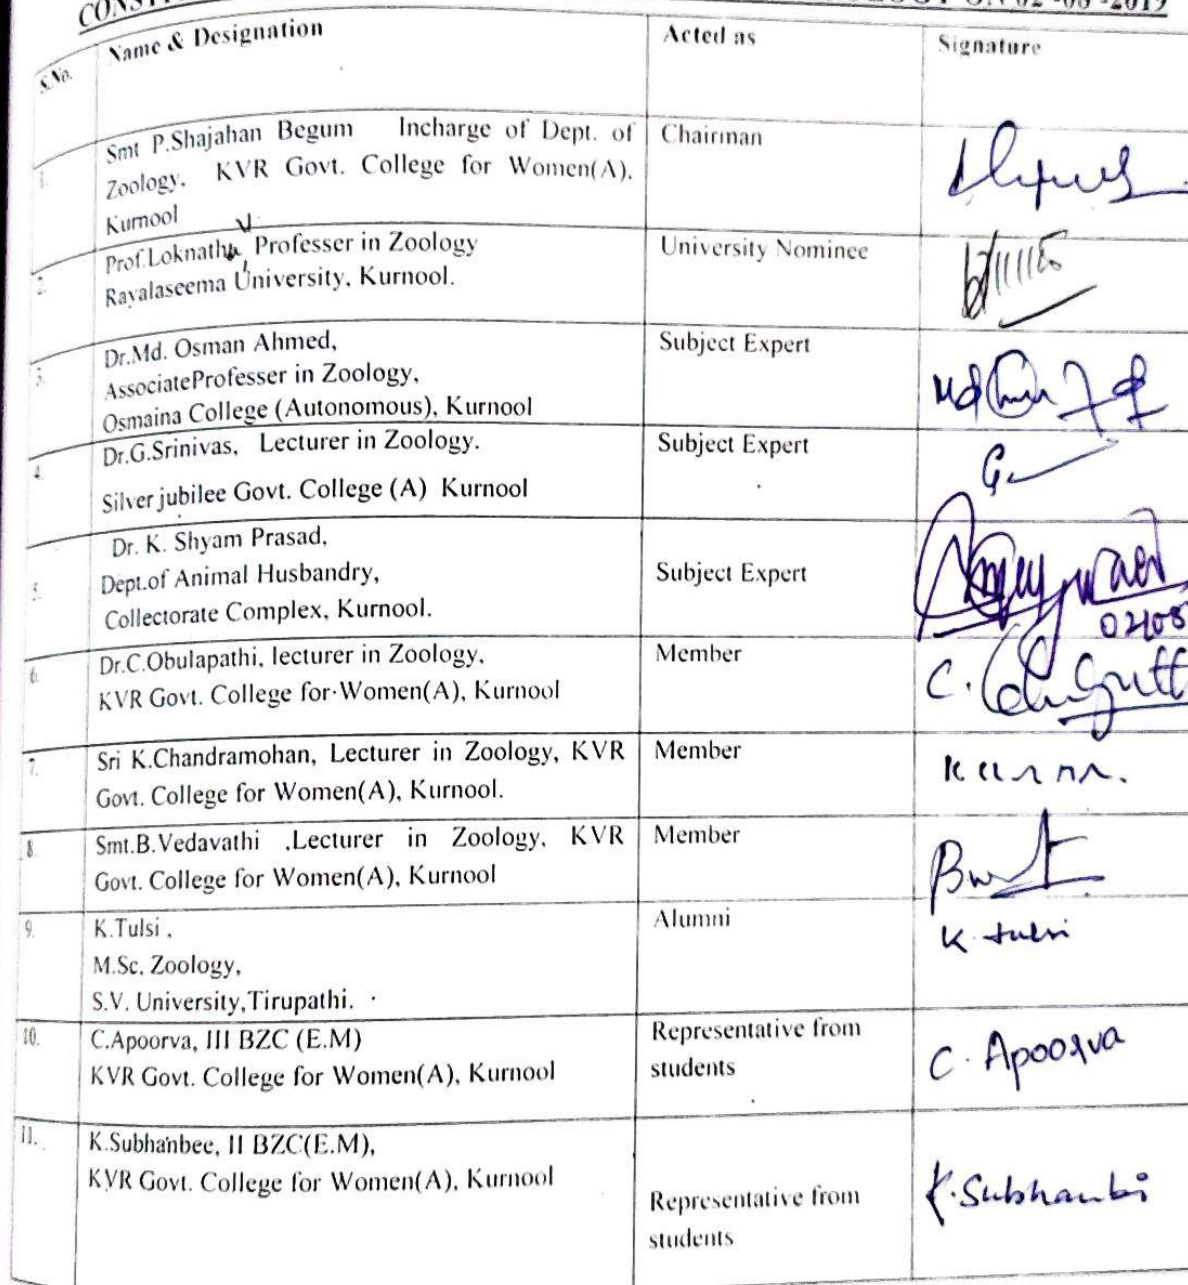 S.No.
Name & Designation
Acted as
Signature
1.
Smt P.Shajahan Begum Incharge of Dept. of
Zoology, KVR Govt. College for Women(A),
Kurnool
Chairman
2.
Prof.Loknatha Professer in Zoology
Rayalaseema University, Kurnool.
University Nominee
3.
Dr.Md. Osman Ahmed,
AssociateProfesser in Zoology,
Osmaina College (Autonomous), Kurnool
Subject Expert
4.
Dr.G.Srinivas, Lecturer in Zoology.
Silver jubilee Govt. College (A) Kurnool
Subject Expert
5.
Dr. K. Shyam Prasad,
Dept.of Animal Husbandry,
Collectorate Complex, Kurnool.
Subject Expert
6.
Dr.C.Obulapathi, lecturer in Zoology,
KVR Govt. College for Women(A), Kurnool
Member
7.
Sri K.Chandramohan, Lecturer in Zoology, KVR
Govt. College for Women(A), Kurnool.
Member
8.
Smt.B.Vedavathi ,Lecturer in Zoology, KVR
Govt. College for Women(A), Kurnool
Member
9.
K.Tulsi ,
M.Sc, Zoology,
S.V. University,Tirupathi.
Alumni
K. tulsi
10.
C.Apoorva, III BZC (E.M)
KVR Govt. College for Women(A), Kurnool
Representative from
students
C. Apoorva
11.
K.Subhanbee, II BZC(E.M),
KVR Govt. College for Women(A), Kurnool
Representative from
students
K.Subhanbi